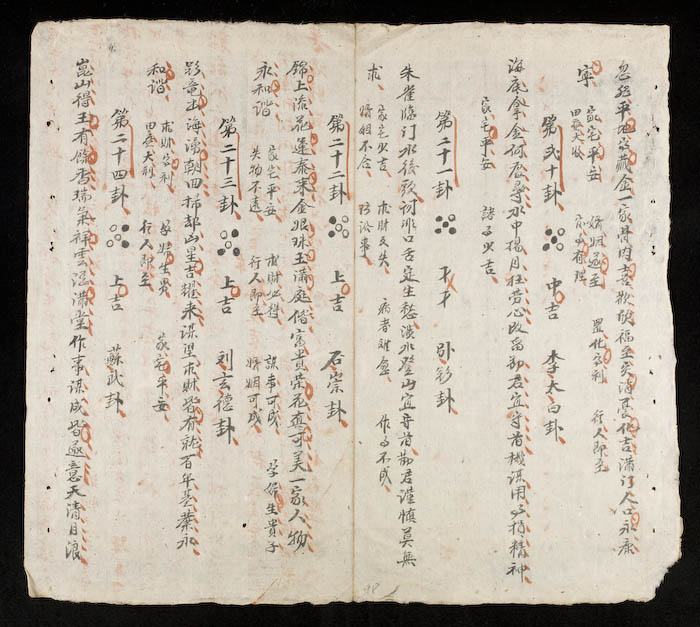 忽然平地只藏金一家骨肉喜歡欣福至災消多化吉滿門人口永康
寧 家宅平安 婚姻遂至 置化字利 行人即至
田蚕大收 家中有理
第弍十卦 中吉 李太白卦
海底拿金何處尋水中撈月枉劳心改為勸君宜守舊機謀用多損精神
家宅平安 諸事少吉
第二十一卦 下下 卦
朱雀臨門水後殃訶誹口舌定生愁淡水登山宜守舊勸君謹慎莫無
求 家宅少吉 求財又失 病者难愈 作事不成
婚姻不合 防訟事
第二十二卦 上吉 石崇卦
錦上添花逢泰来金銀珠玉滿庭偕富貴荣花真可美一家人物
永和諧 家宅平安 求財必得 謀事可成 孕婦生貴子
失物不遠 行人即至 婚姻可成
第二十三卦 上吉 刘玄德卦
彩竜出海湧朝回掃却山星吉耀来謀望求財皆有就百年長葉永
和諧 求財字利 孕婦生男 家宅平安
田蚕大利 行人即至
第二十四卦 上吉 蘇武卦
崑山得玉有餘香瑞氣祥雲混滿堂作事謀成皆遂意天清月浪